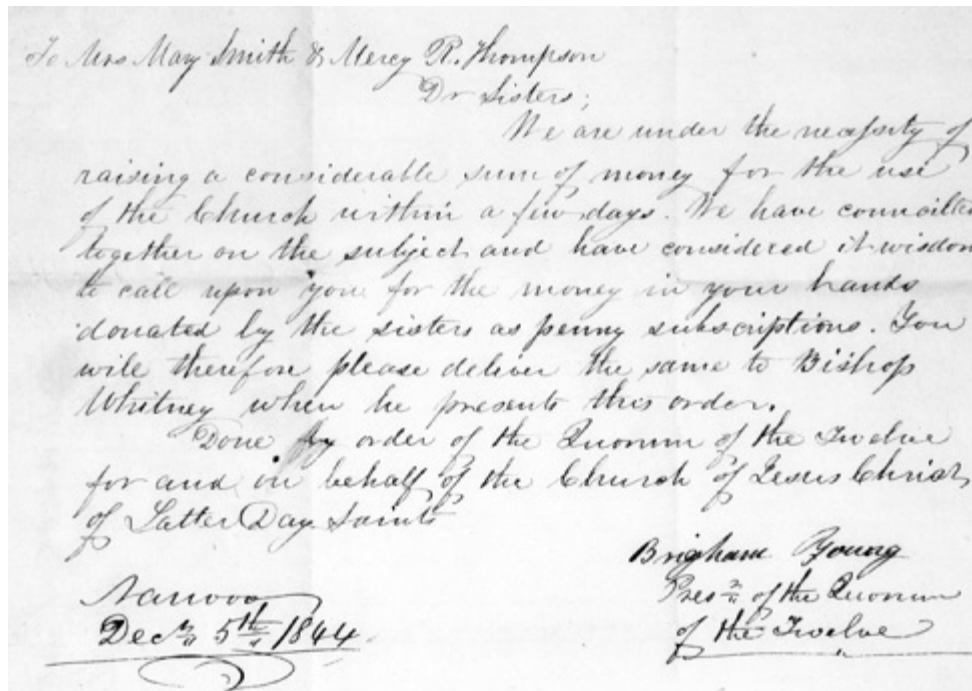 To Mrs Mary Smith & Mercy R. Thompson
Dr Sisters;
We are under the necessity of
raising a considerable sum of money for the use
of the Church within a few days. We have councilled
together on the subject and have considered it wisdom
to call upon you for the money in your hands
donated by the sisters as penny subscriptions. You
will therefore please deliver the same to Bishop
Whitney when he presents this order.
Done by order of the Quorum of the Twelve
for and in behalf of the Church of Jesus Christ
of Latter Day Saints
Brigham Young
Nauvoo
Pres't of the Quorum
Decr 5th 1844
of the Twelve